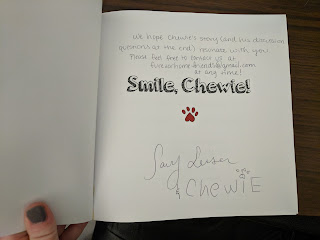 We hope Chewie's story (and his discussion
questions at the end) resonate with you.
Please feel free to contact us at
at any time!
Smile, Chewie!
& Chewie